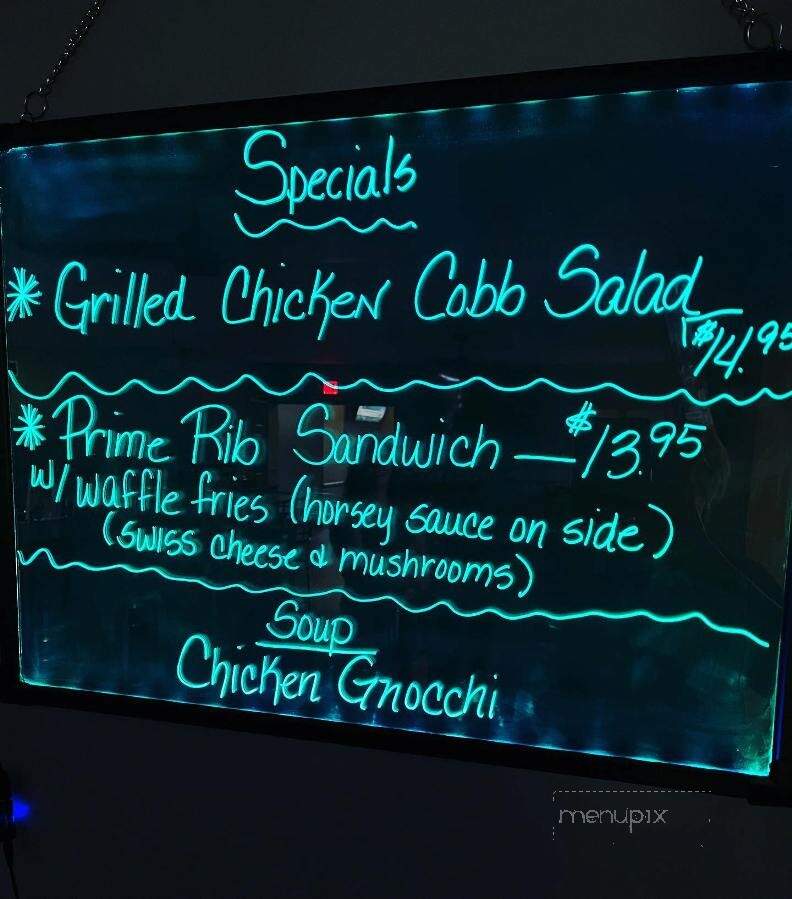 Specials
* Grilled Chicken Cobb Salad
$14.95
* Prime Rib Sandwich — $13.95
w/ waffle fries (horsey sauce on side)
(swiss cheese & mushrooms)
Soup
Chicken Gnocchi
menupix